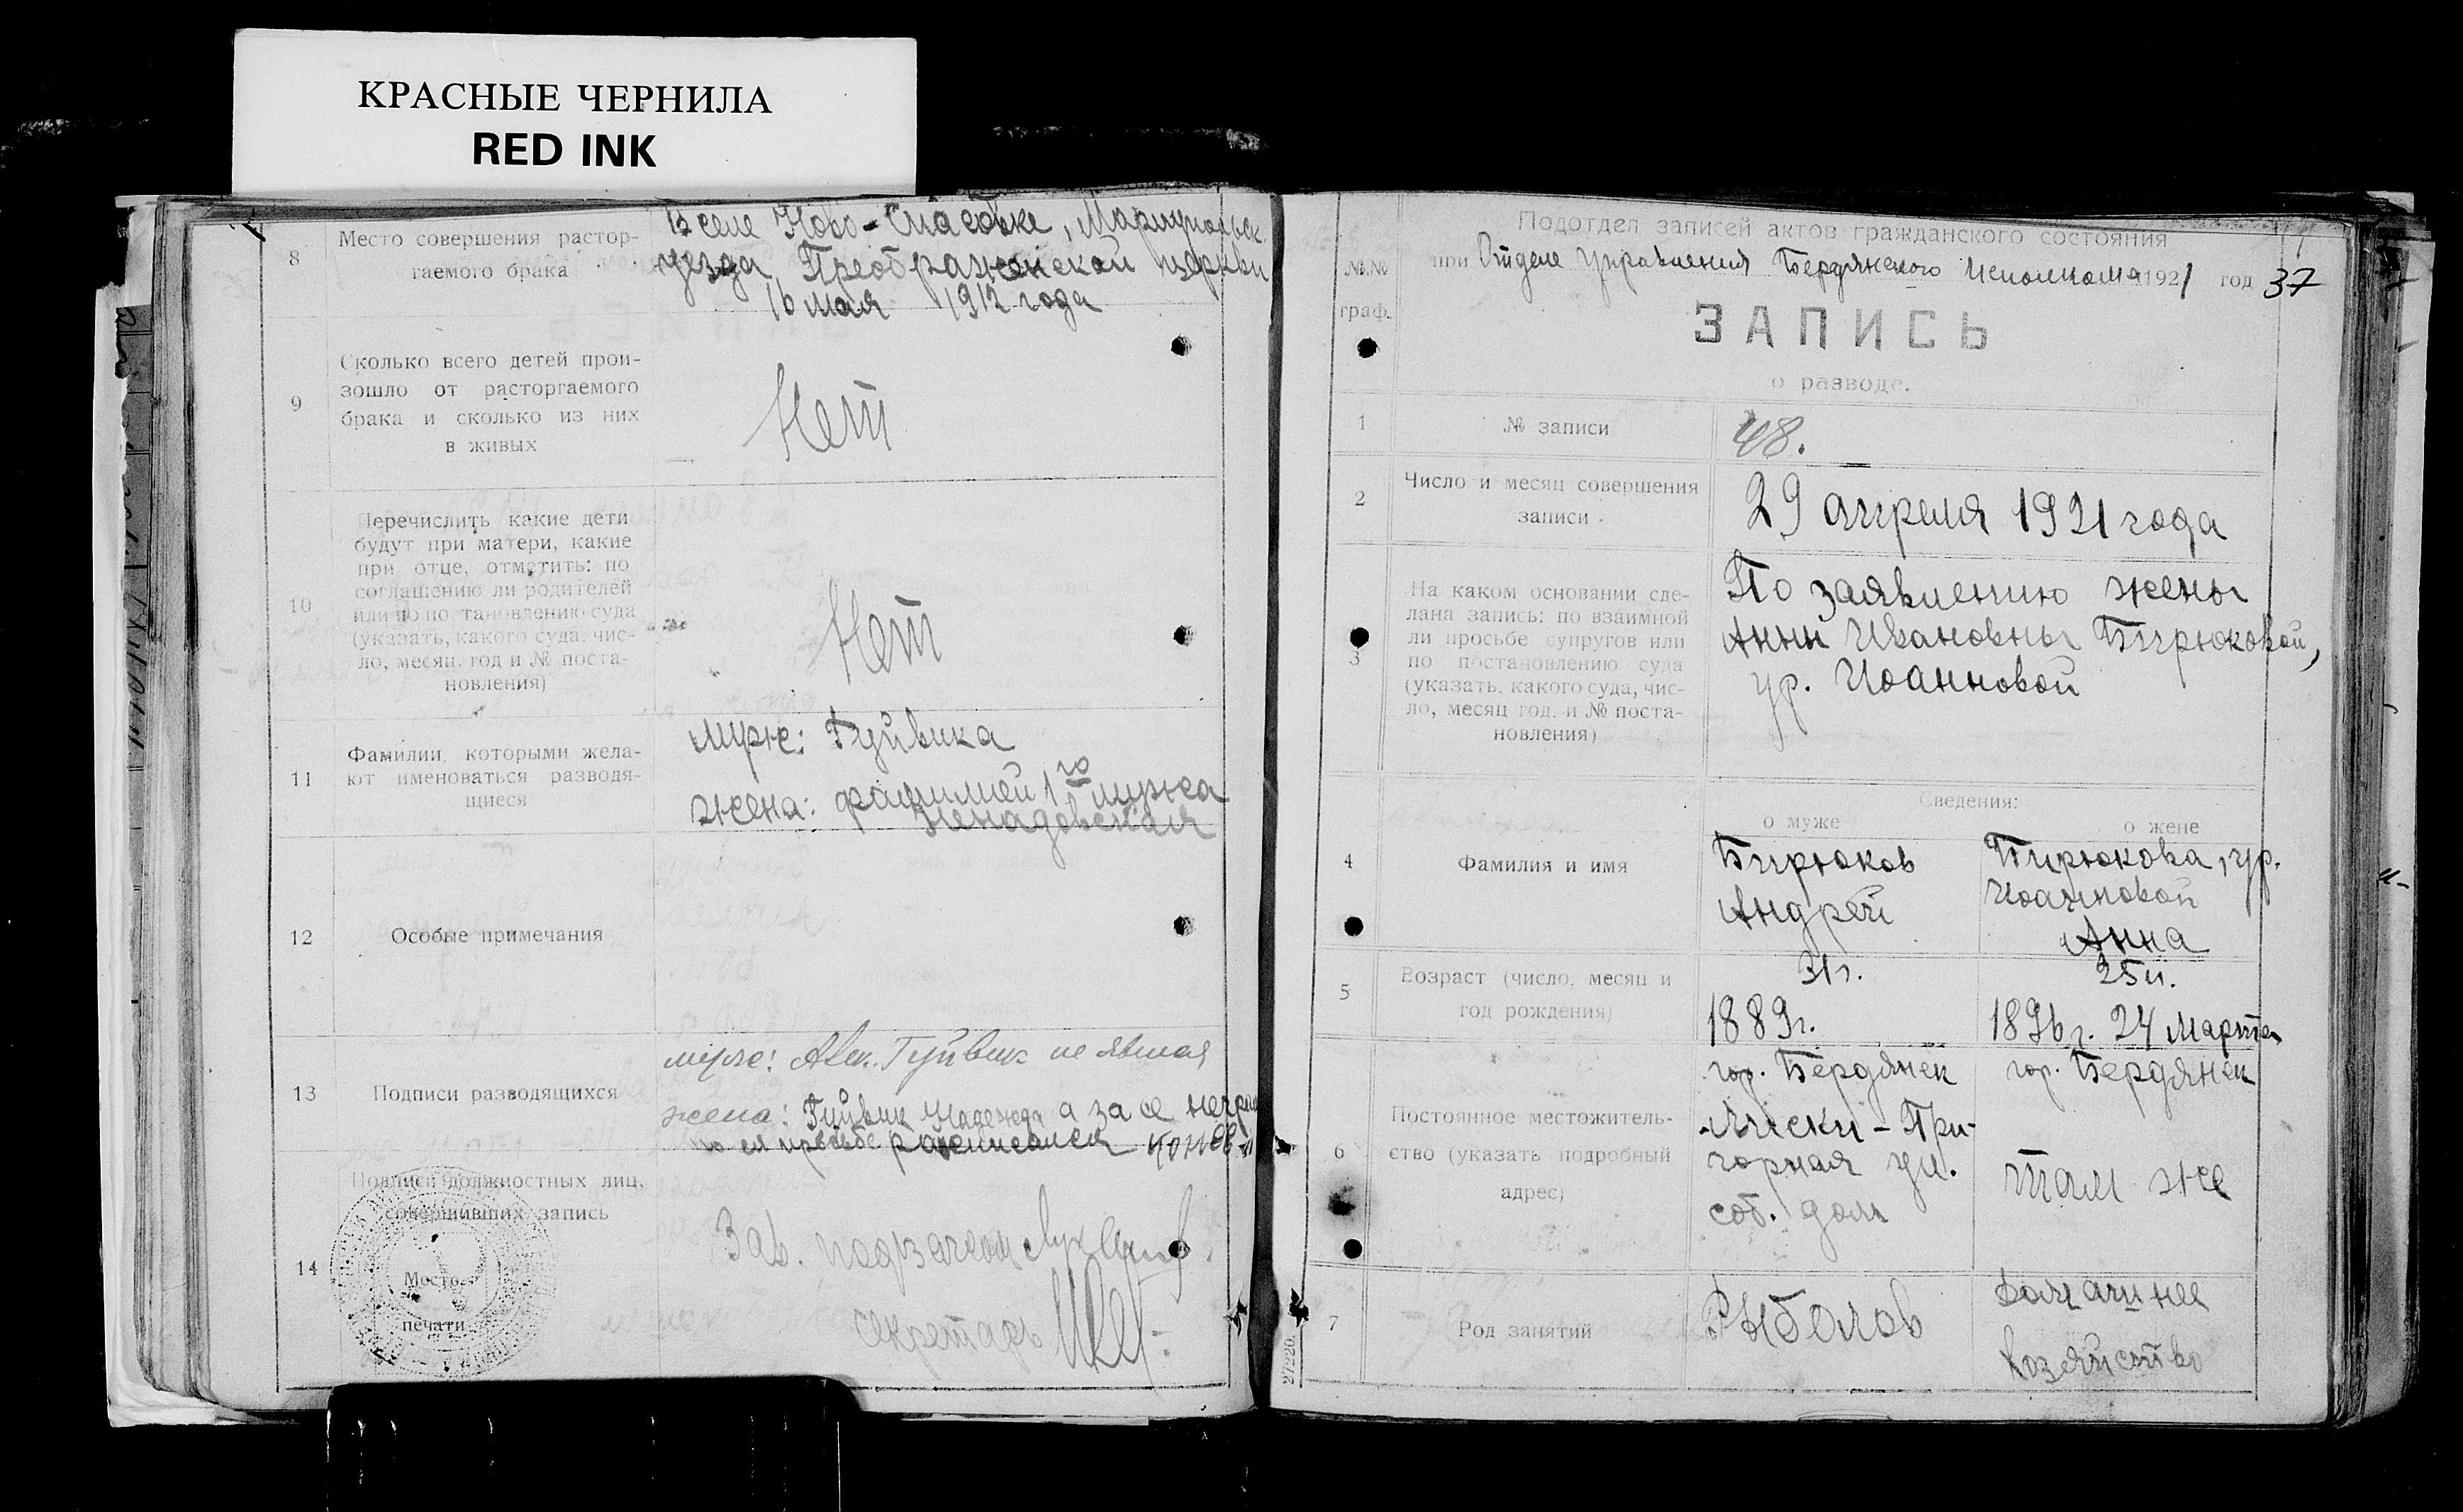 КРАСНЫЕ ЧЕРНИЛА
RED INK
8
Место совершения растор-
гаемого брака
В селе Ново-Спасовке, Мариупольск.
уезда, Преображенской церкви
16 мая 1912 года
9
Сколько всего детей прои-
зошло от расторгаемого
брака и сколько из них
в живых
Нет
10
Перечислить какие дети
будут при матери, какие
при отце, отметить: по
соглашению ли родителей
или по по тановлению суда
(указать, какого суда, чис-
ло, месяц, год и № поста-
новления)
Нет
11
Фамилии, которыми жела-
ют именоваться разводя-
щиеся
муж: Гуйвика
жена: фамилией 1го мужа
Ненадовская
12
Особые примечания
13
Подписи разводящихся
муж: Алек. Гуйвик не явился
жена: Гуйвик Надежда а за ее негра
по ея просьбе расписался
14
Подписи должностных лиц,
совершивших запись
Место
печати
Зав. подзагсом
Секретарь
№№
граф.
Подотдел записей актов гражданского состояния
при Отделе Управления Бердянского Исполкома 1921 год 37
ЗАПИСЬ
о разводе.
1
№ записи
48.
2
Число и месяц совершения
записи
29 апреля 1921 года
3
На каком основании сде-
лана запись: по взаимной
ли просьбе супругов или
по постановлению суда
(указать, какого суда, чис-
ло, месяц год, и № поста-
новления)
По заявлению жены
Анны Ивановны Бирюковой,
ур. Иоанновой
Сведения:
о муже
о жене
4
Фамилия и имя
Бирюков
Андрей
Бирюкова, ур.
Иоанновой
Анна
5
Возраст (число, месяц и
год рождения)
31 г.
1889 г.
25 л.
1896 г. 24 Марта
6
Постоянное местожитель-
ство (указать подробный
адрес)
гор. Бердянск
Лиски - При-
горная ул.
соб. дом
гор. Бердянск
там же
7
Род занятий
Рыболов
домашнее
хозяйство
27220